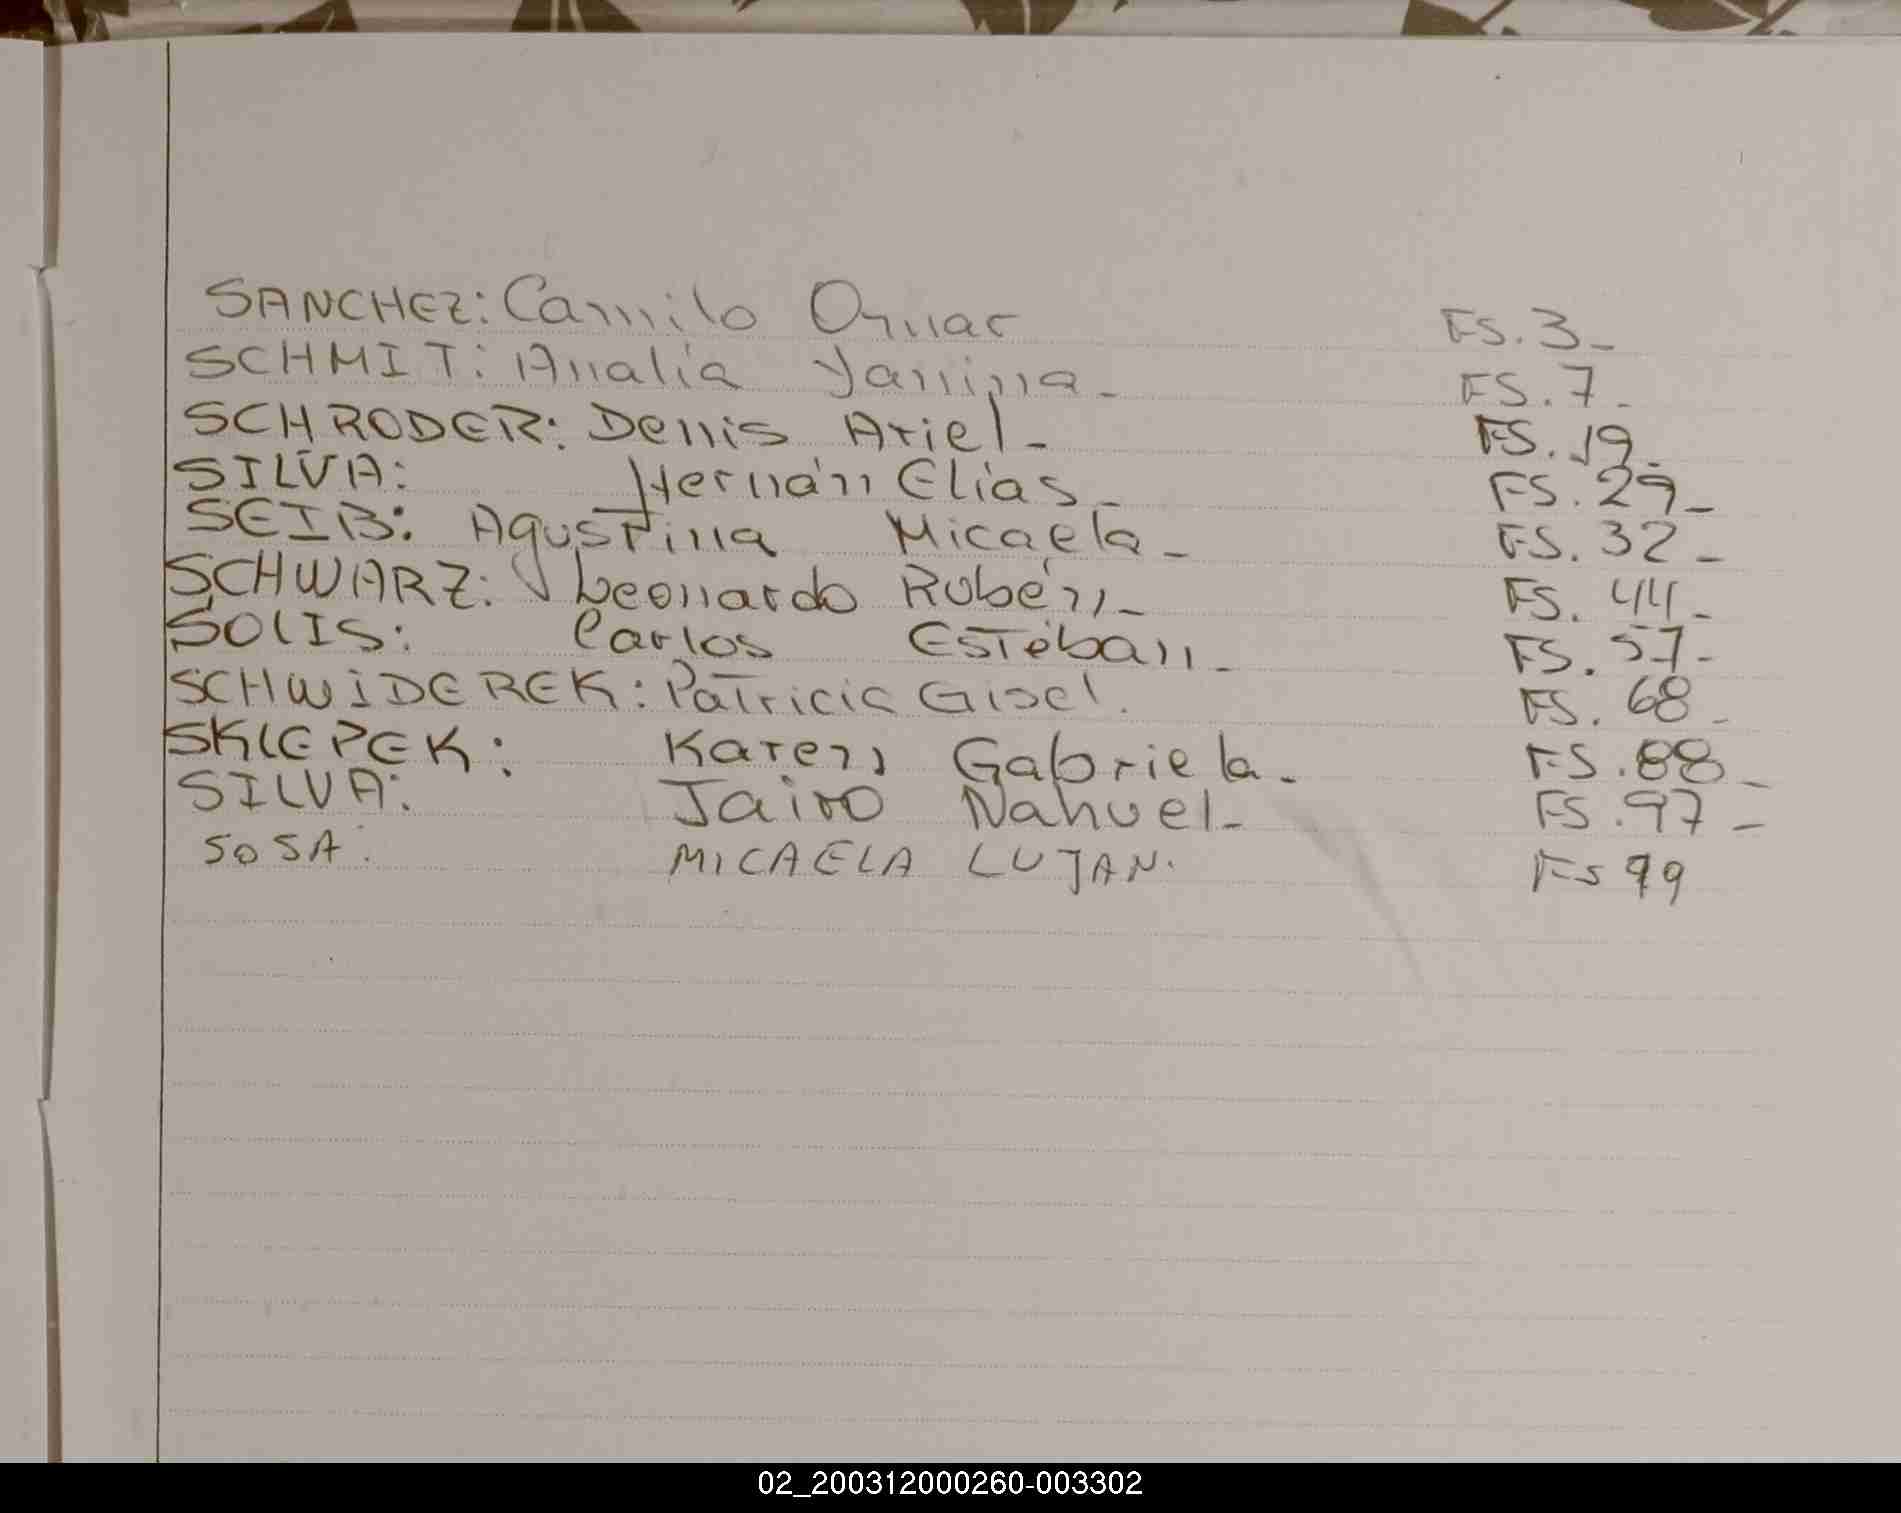 SANCHEZ: Camilo Omar FS. 3_
SCHMIT: Analía Yanina_ FS. 7_
SCHRODER: Denis Ariel_ FS. 19_
SILVA: Hernán Elías_ FS. 29_
SEIB: Agustina Micaela_ FS. 32_
SCHWARZ: Leonardo Rubén_ FS. 44_
SOLIS: Carlos Estéban_ FS. 57_
SCHWIDEREK: Patricia Gisel. FS. 68_
SKLEPEK: Karen Gabriela_ FS. 88_
SILVA: Jairo Nahuel_ FS. 97_
SOSA: MICAELA LUJAN. FS 99
02_200312000260-003302